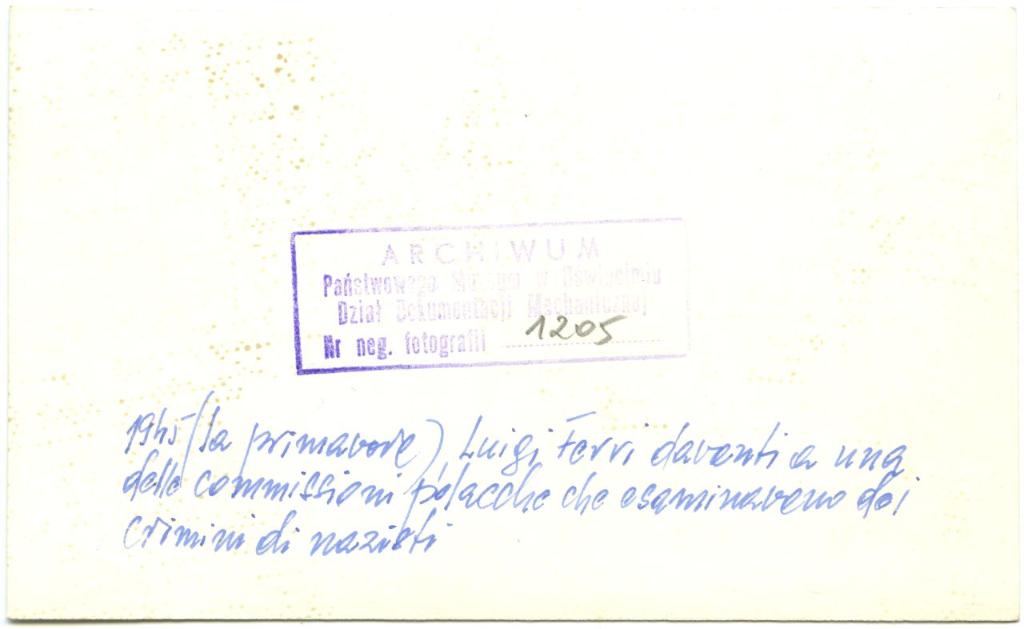 ARCHIWUM
Państwowego Muzeum w Oświęcimiu
Dział Dokumentacji Mechanicznej
Nr neg. fotografii 1205
1945 (la primavere) Luigi Ferri daventi a una
delle commissioni polacche che esaminaveno dei
crimini di nazisti